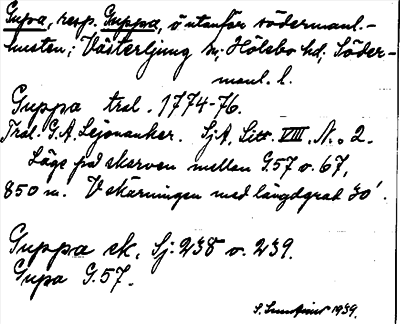 Gupa, resp. Guppa, ö utanför södermanl.-
kusten; Västerljung sn, Hölebo hd, Söder-
manl. l.
Guppa tral. 1774-76.
Tral. G.A. Lejonanker. SjA, Litt. VIII. N:o 2.
Läge på skärven mellan G.57 o. 67,
850 m. V skärningen med längdgrad 30'.
Guppa ek. Sj: 238 o. 239.
Gupa G.57.
S. 1939.